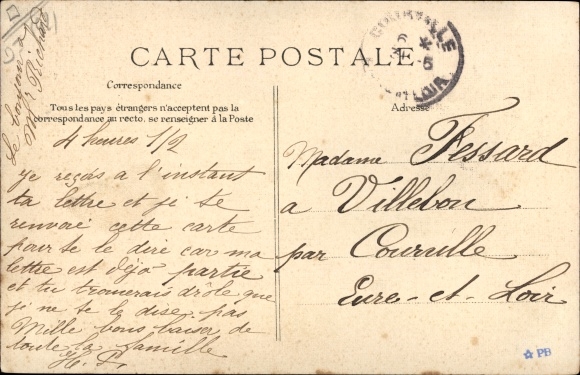 CARTE POSTALE
Correspondance
Tous les pays étrangers n'acceptent pas la
correspondance au recto. se renseigner à la Poste
Adresse
COURVILLE
LOIR
Le bonjour à
Mr Richard
4 heures 1/2
Je reçois à l'instant
ta lettre et je te
renvoie cette carte
pour te le dire car ma
lettre est déjà partie
et tu trouverais drôle que
je ne te le dise pas
Mille bons baiser de
toute la famille
H. L.
Madame Fessard
a Villebon
par Courville
Eure-et-Loir
☆ PB